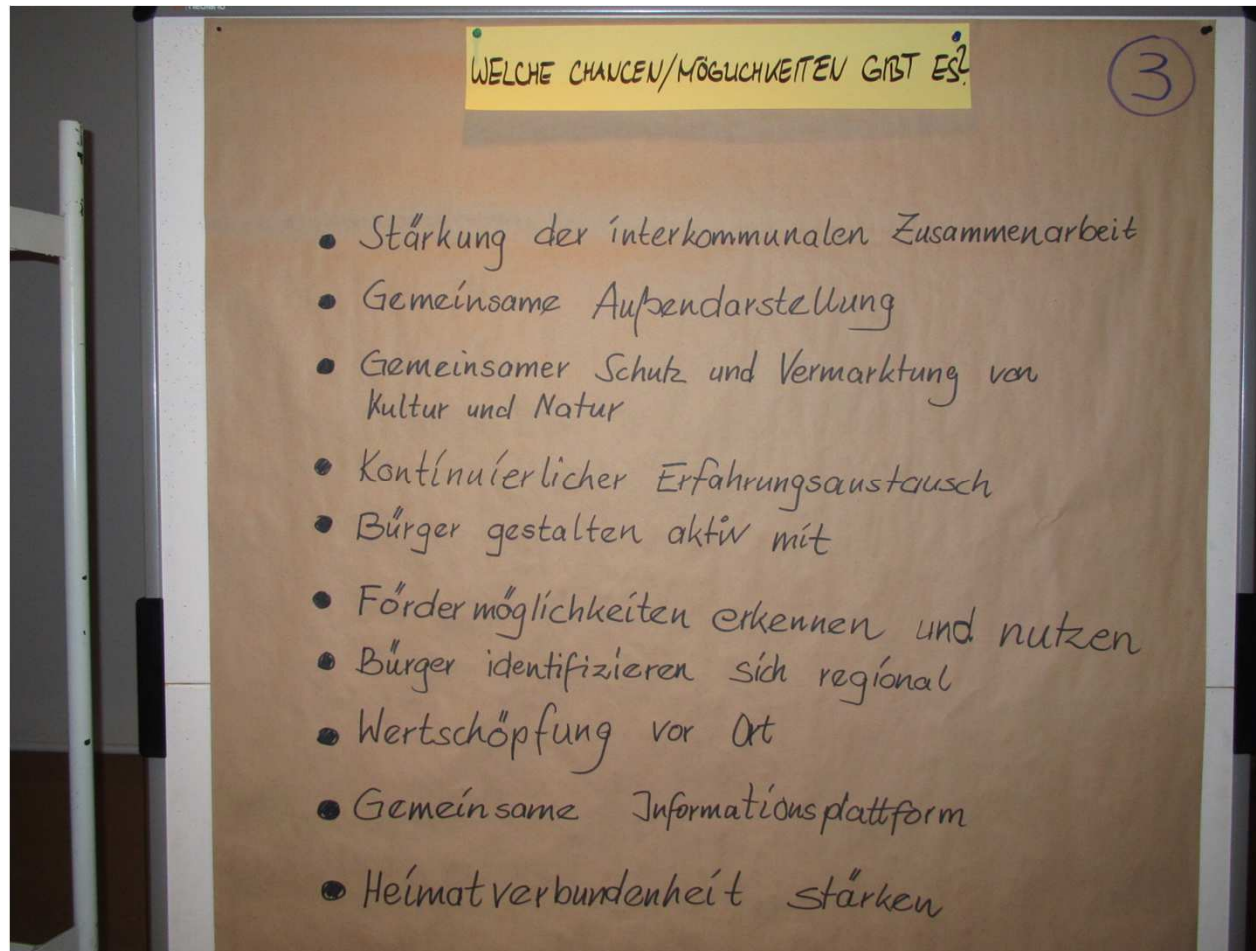 WELCHE CHANCEN/MÖGLICHKEITEN GIBT ES?
3
• Stärkung der interkommunalen Zusammenarbeit
• Gemeinsame Außendarstellung
• Gemeinsamer Schutz und Vermarktung von
Kultur und Natur
• Kontinuierlicher Erfahrungsaustausch
• Bürger gestalten aktiv mit
• Fördermöglichkeiten erkennen und nutzen
• Bürger identifizieren sich regional
• Wertschöpfung vor Ort
• Gemeinsame Informationsplattform
• Heimatverbundenheit stärken